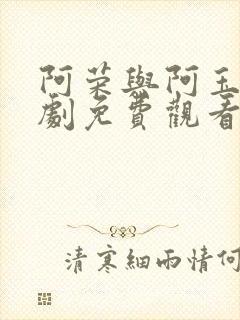 阿荣與阿玉
劇免費觀看
清寒細雨情何